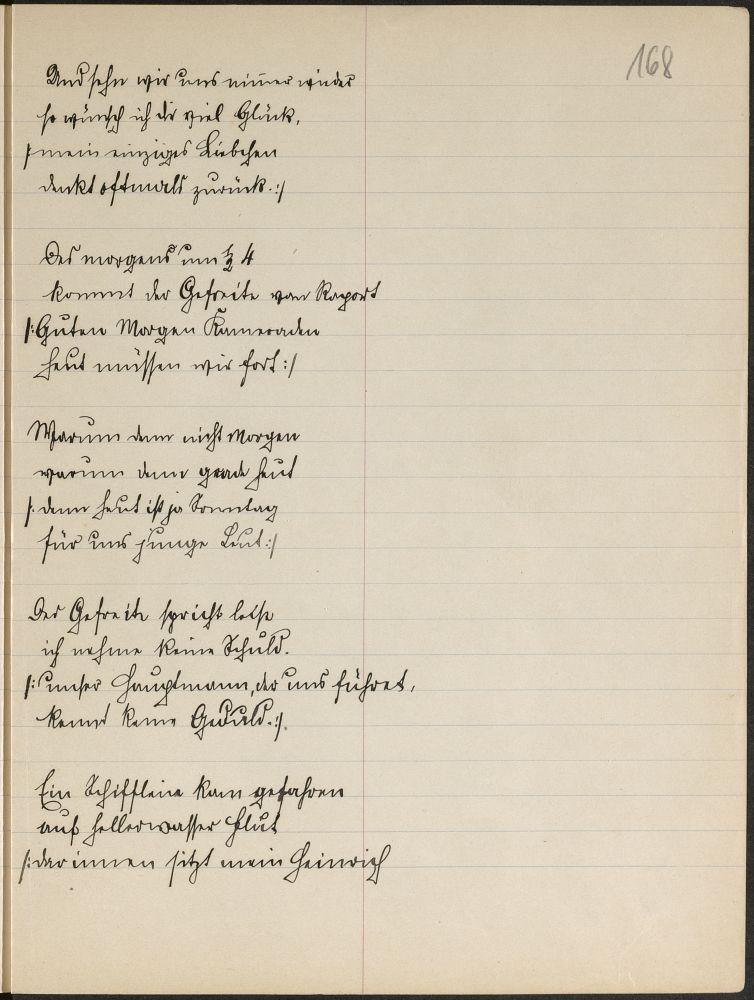 168
Und sehn wir uns nimmer wieder
so wünsch ich dir viel Glück,
/: mein einziges Liebchen
denkt oftmals zurück. :/
Des morgens um ½ 4
kommt der Gefreite vom Raport
/: Guten Morgen Kameraden
heut müssen wir fort :/
Warum denn nicht Morgen
warum denn grade heut
/: denn heut ist ja Sonntag
für uns junge Leut :/
Der Gefreite spricht leise
ich nehme keine Schuld.
/: unser Hauptmann, der uns führet,
kennt keine Geduld. :/.
Ein Schifflein kam gefahren
auf hellerwasser Flut
/: darinnen sitzt mein Heinrich